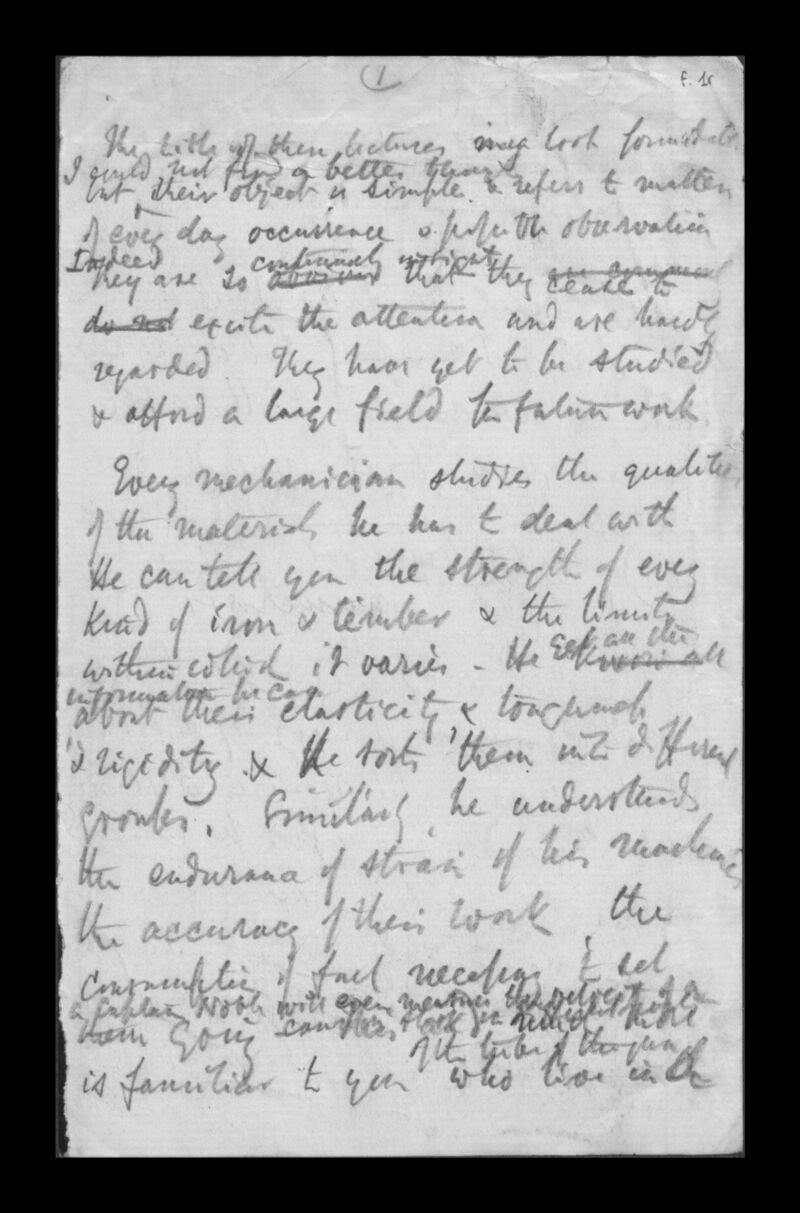 1
f. 1r
The title of these lectures may look formidable
I could not find a better though
but their object is simple & refers to matters
of every day occurrence & possible observation
Indeed continually in sight
They are so obvious that they are commonly cease to
do not excite the attention and are hardly
regarded. They have yet to be studied
& afford a large field for future work
Every mechanician studies the qualities
of the materials he has to deal with
He can tell you the strength of every
kind of iron & timber & the limits
within which it varies - He get all the
knows all
information he can
about their elasticity, & toughness
& rigidity & He sorts them into different
groups. Similarly he understands
the endurance of strain of his machines
the accuracy of their work the
consumption of fuel necessary to set
a Captain Noble will even measure the
them going
of the tube of the gun
is familiar to you who live in